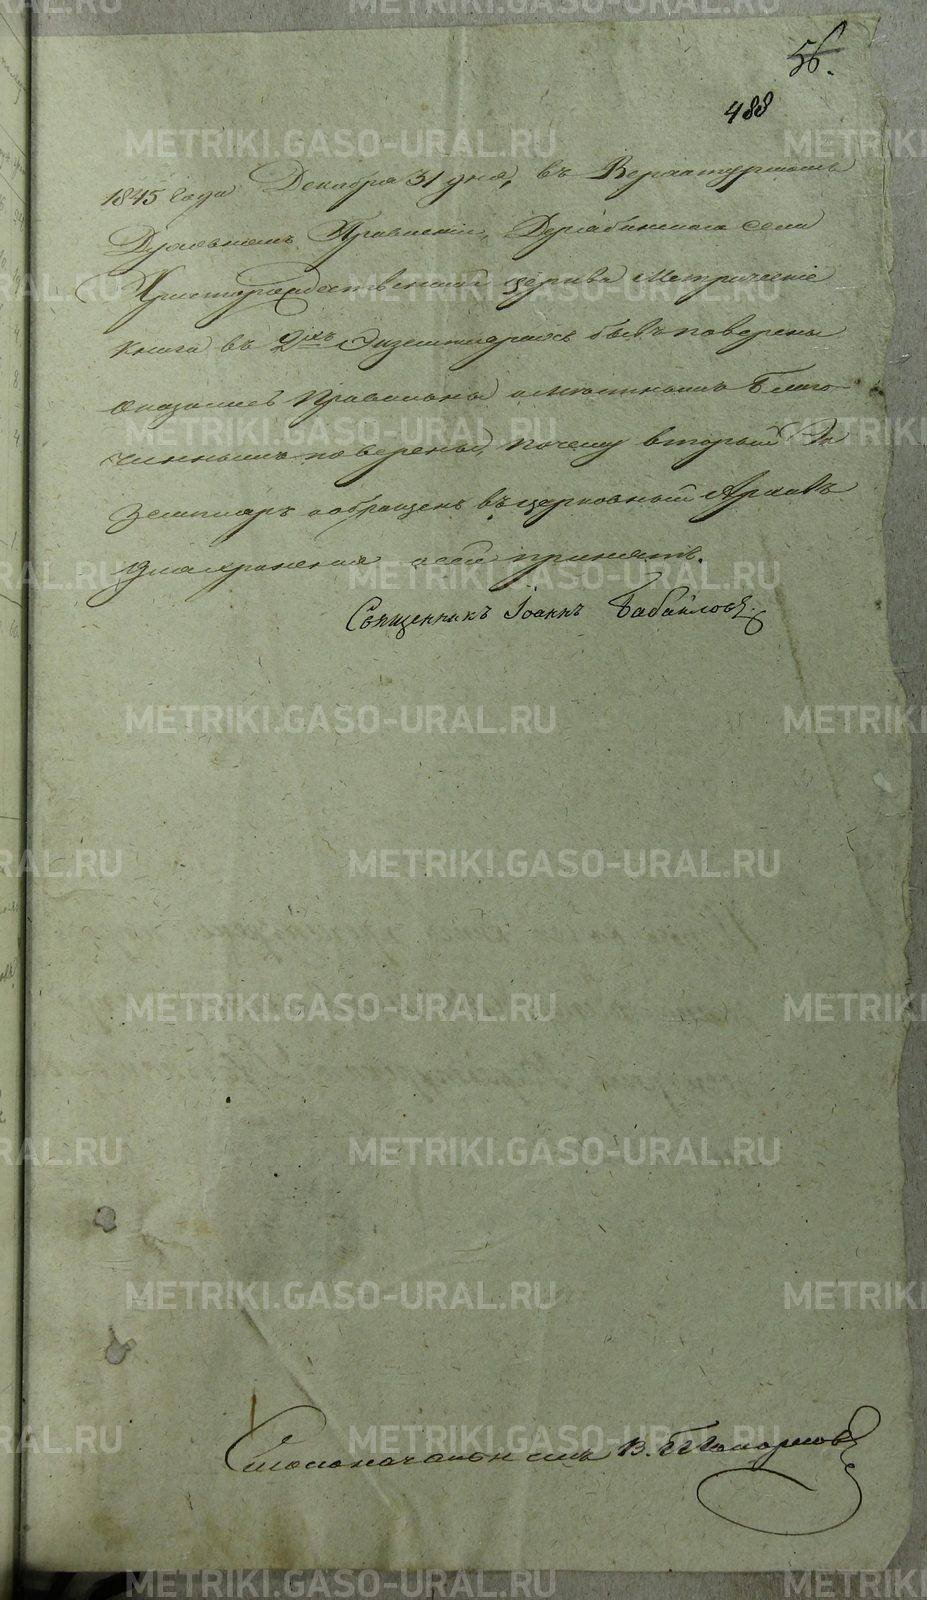 56.
488
1845 года Декабря 31 дня, въ Верхотурскомъ
Духовномъ Правленіи, Дерябинскаго села
Христорождественской церкви Метрическіе
книги въ 2хъ Экземплярахъ бывъ поверены
оказались правильны и Благо-
чиннымъ поверены, почему вторый Эк
земпляръ обращенъ въ церковный Архивъ
для храненія принятъ.
Священникъ Іоаннъ Бабайловъ.
Столоначальникъ В.
METRIKI.GASO-URAL.RU